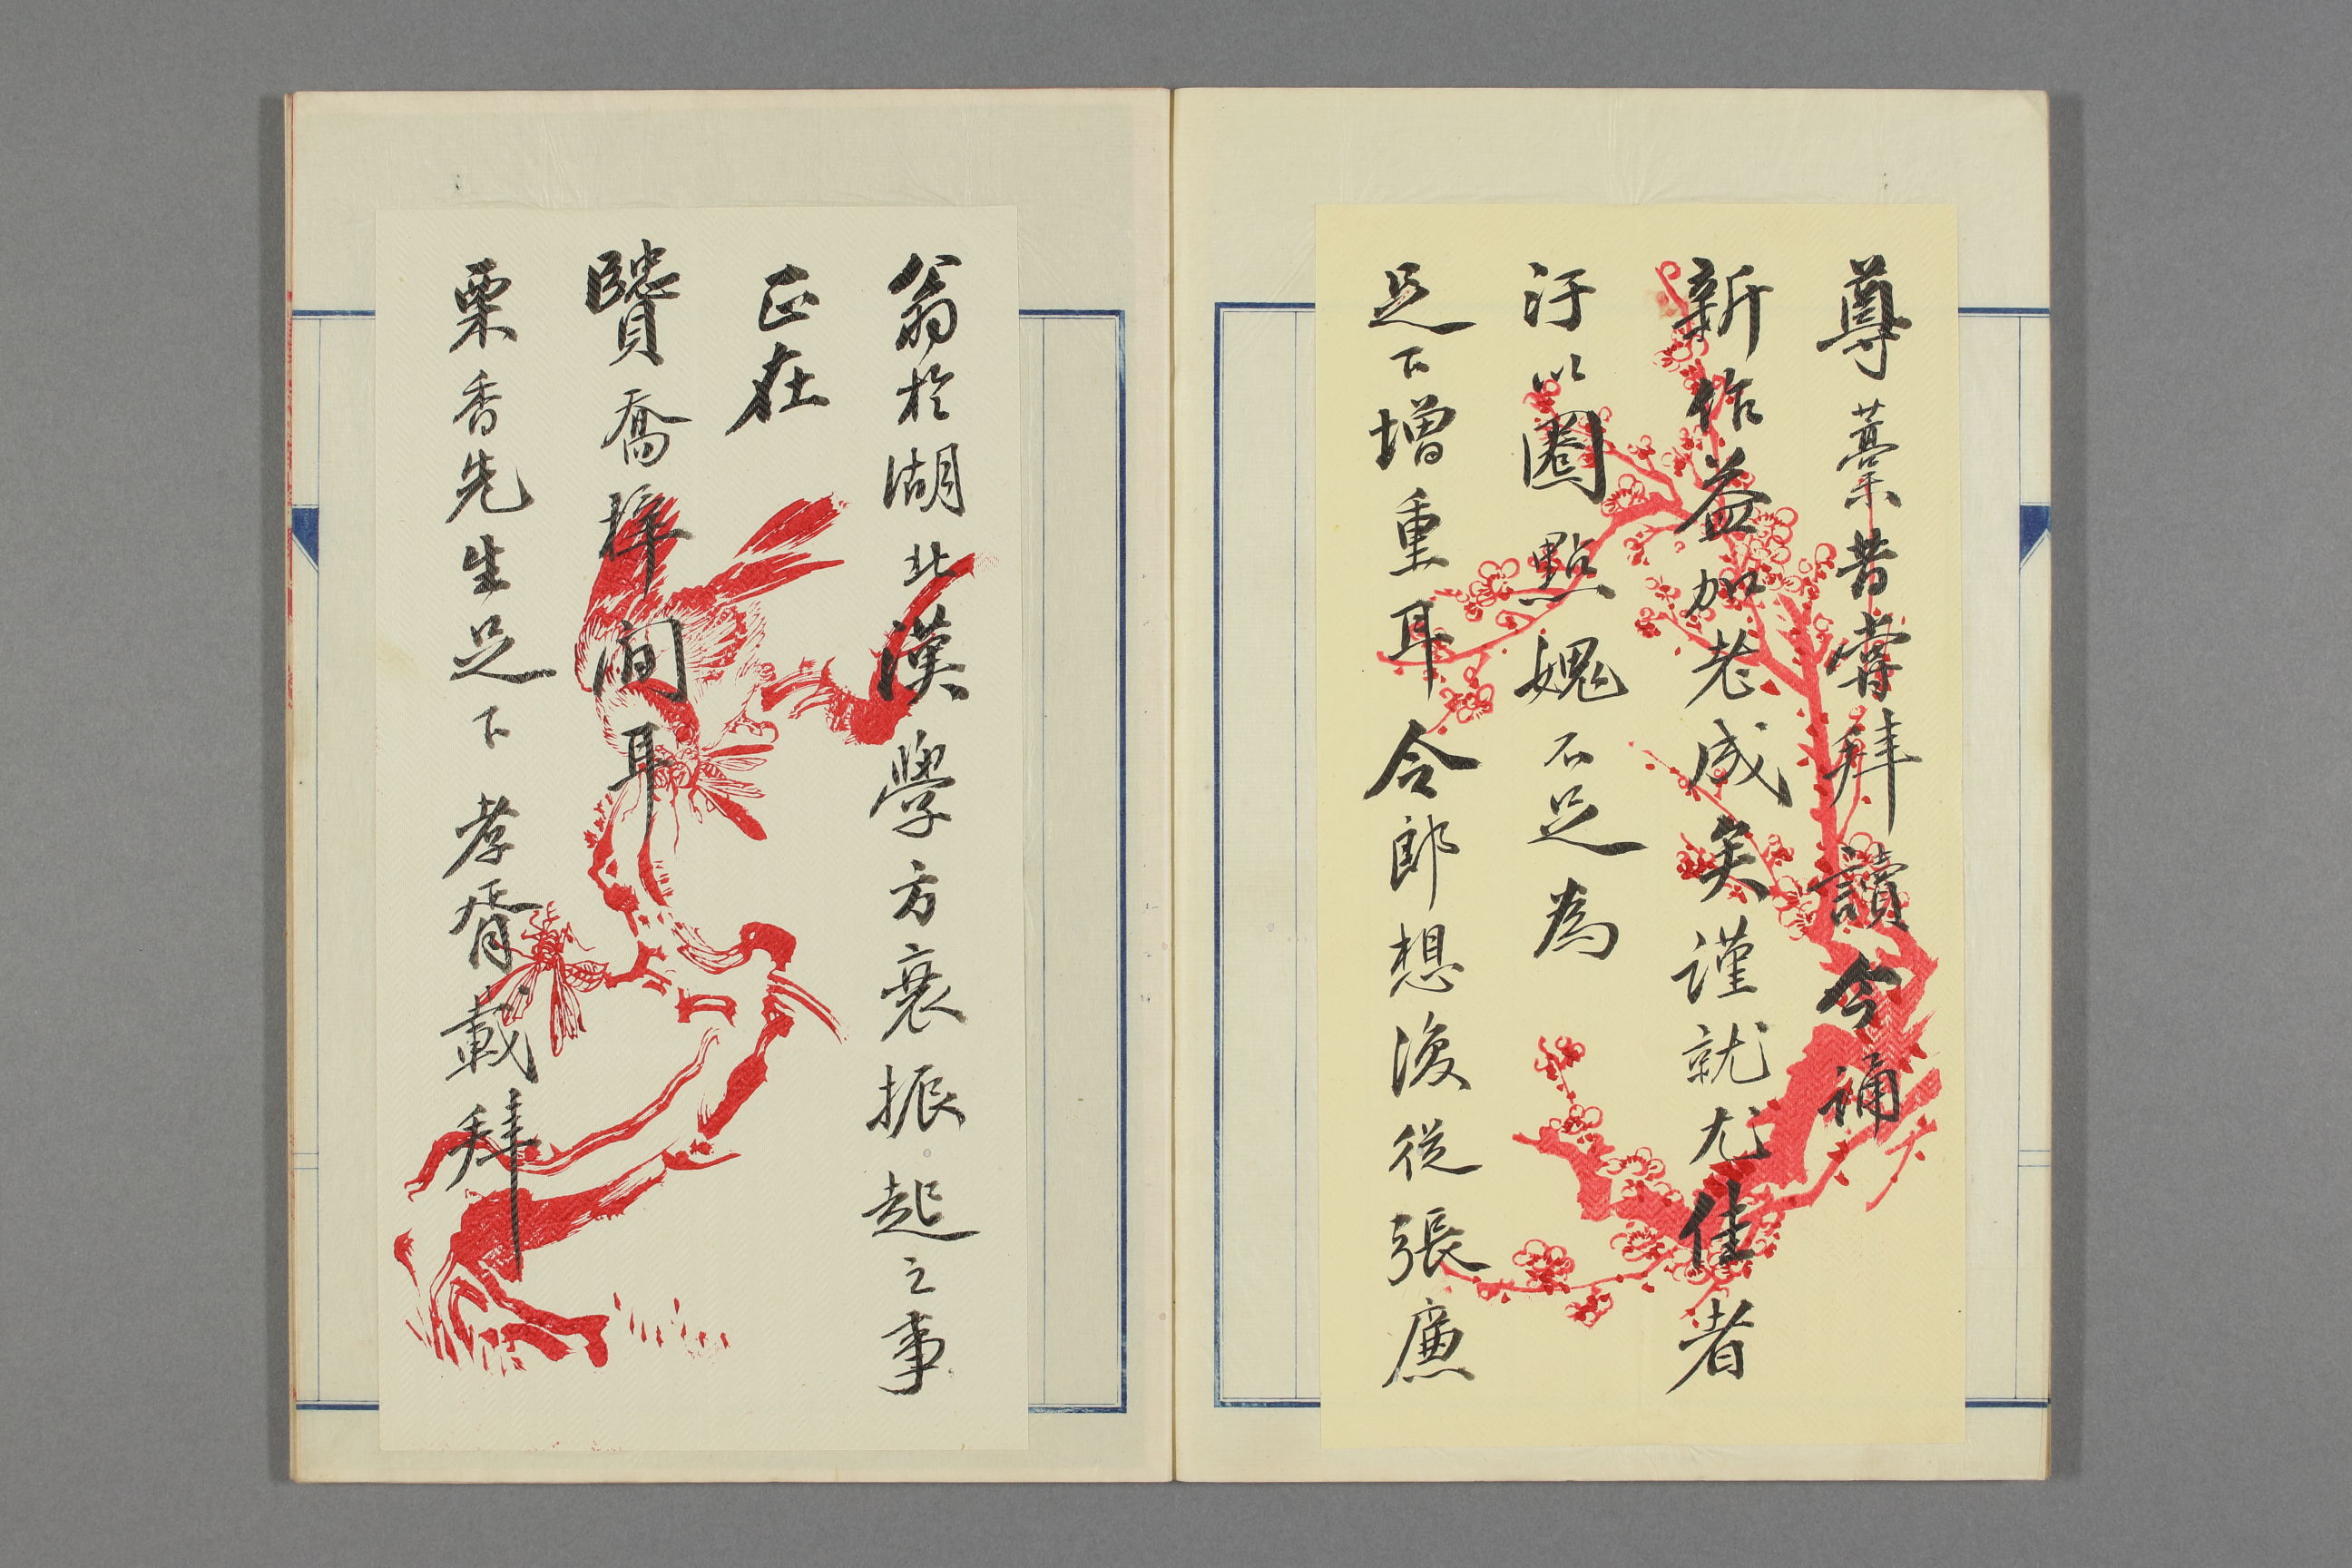 尊藁昔嘗拜讀今誦
新作益加老成矣謹就尤佳者
汙以圈點媿不足為
足下增重耳令郎想復從張廉
翁於湖北漢學方衰振起之事
正在
賢喬梓間耳
栗香先生足下 孝胥載拜